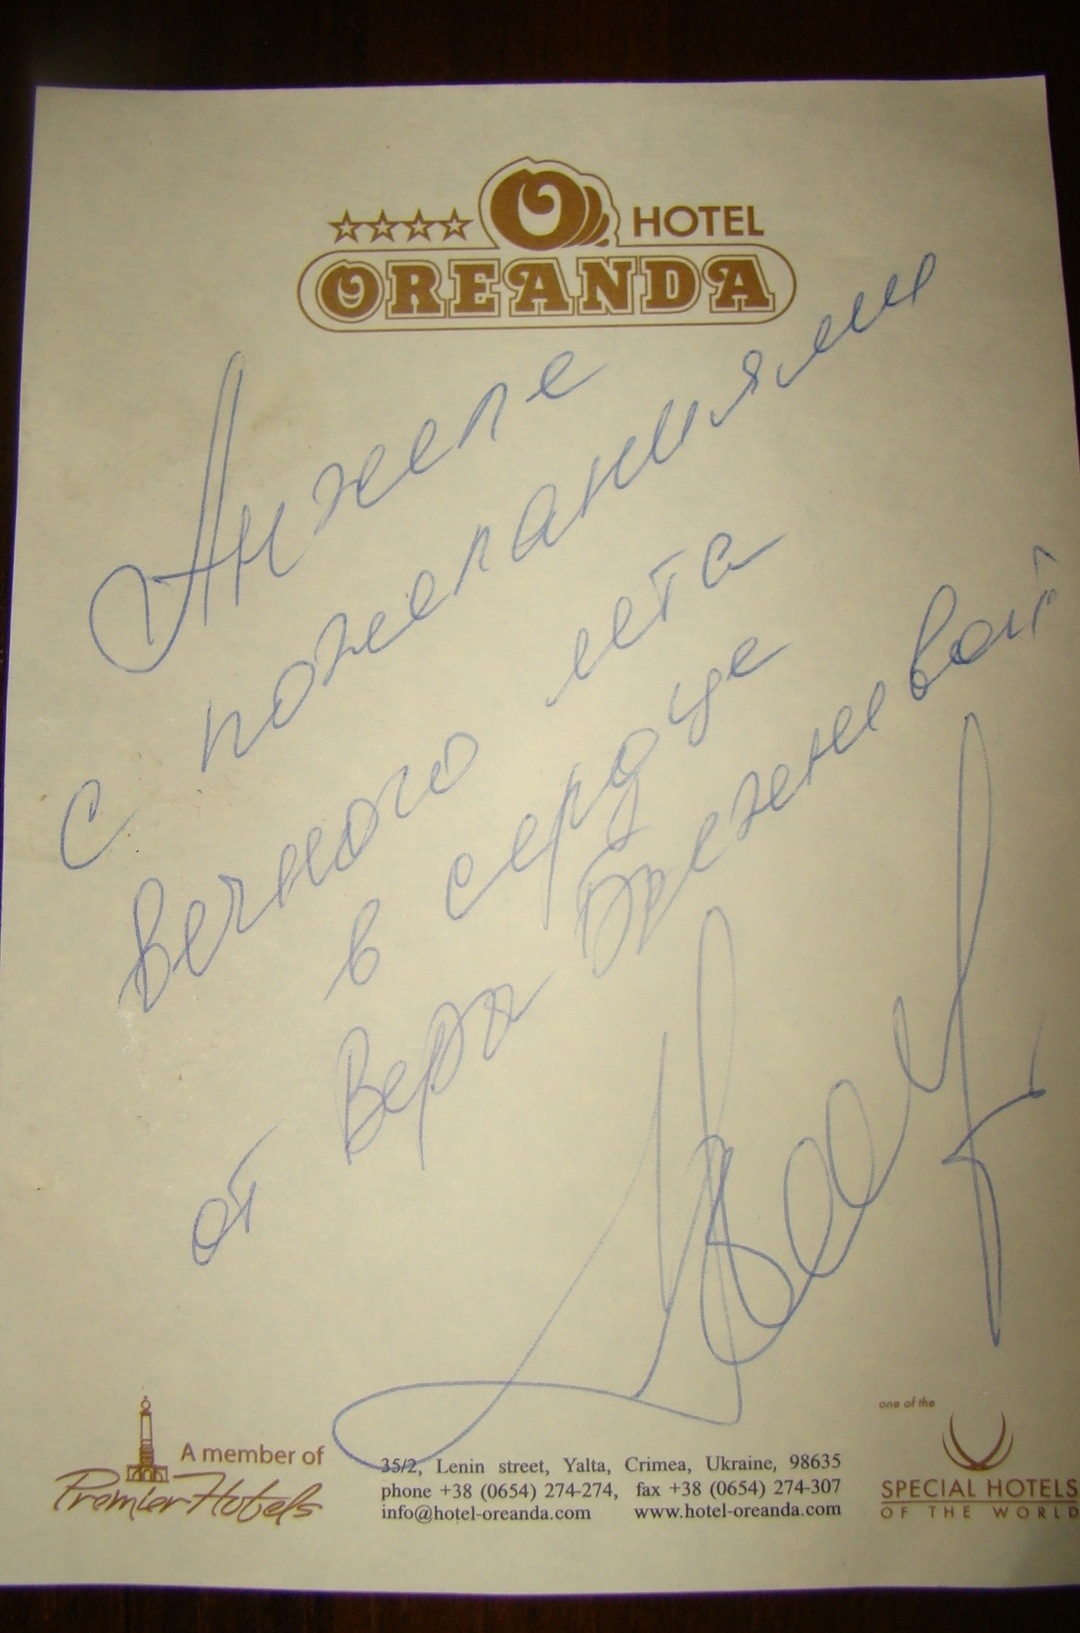 HOTEL
OREANDA
Анжеле
с пожеланиями
вечного лета
в сердце
от Веры Брежневой
A member of
Premier Hotels
35/2, Lenin street, Yalta, Crimea, Ukraine, 98635
phone +38 (0654) 274-274, fax +38 (0654) 274-307
info@hotel-oreanda.com www.hotel-oreanda.com
one of the
SPECIAL HOTELS
OF THE WORLD